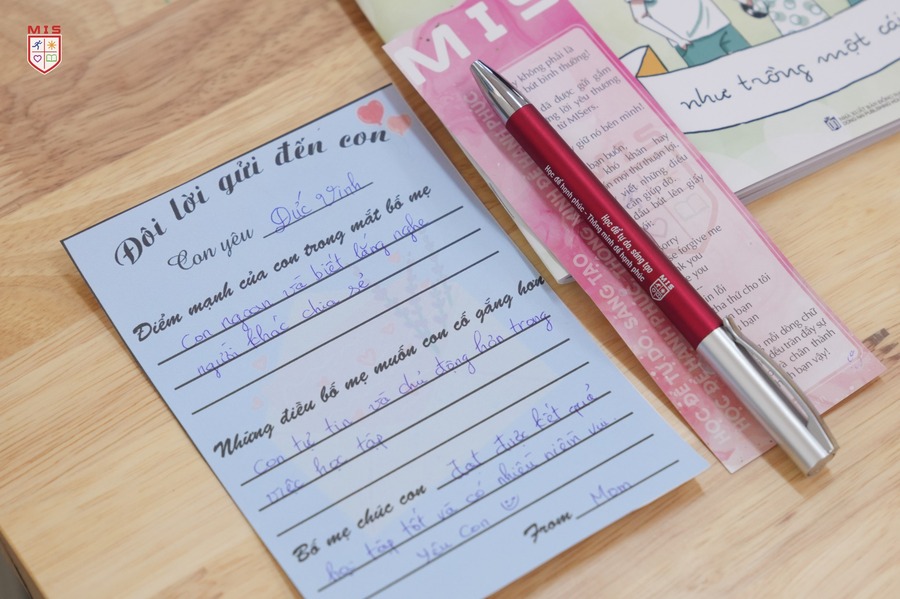 MIS
Đôi lời gửi đến con
Con yêu Đức Vinh
Điểm mạnh của con trong mắt bố mẹ
Con ngoan và biết lắng nghe
người khác chia sẻ
Những điều bố mẹ muốn con cố gắng hơn
Con tự tin và chủ động hơn trong
việc học tập
Bố mẹ chúc con đạt được kết quả
học tập tốt và có nhiều niềm vui
yêu con
From Mom
MIS
không phải là
bút bình thường!
đã được gửi gắm
lời yêu thương
từ MISers.
giữ nó bên mình!
bạn buồn,
khó khăn hay
mọi thứ thuận lợi,
viết những điều
cần giúp đỡ.
đầu bút lên giấy
sorry
forgive me
you
you
xin lỗi
tha thứ cho tôi
bạn
bạn
mỗi dòng chữ
đều tràn đầy sự
và chân thành
bạn vậy!
HỌC ĐỂ TỰ DO, SÁNG TẠO
HỌC ĐỂ HẠNH PHÚC
Học để tự do, sáng tạo
Học để hạnh phúc - Thông minh để hạnh phúc
MIS
như trồng một cái